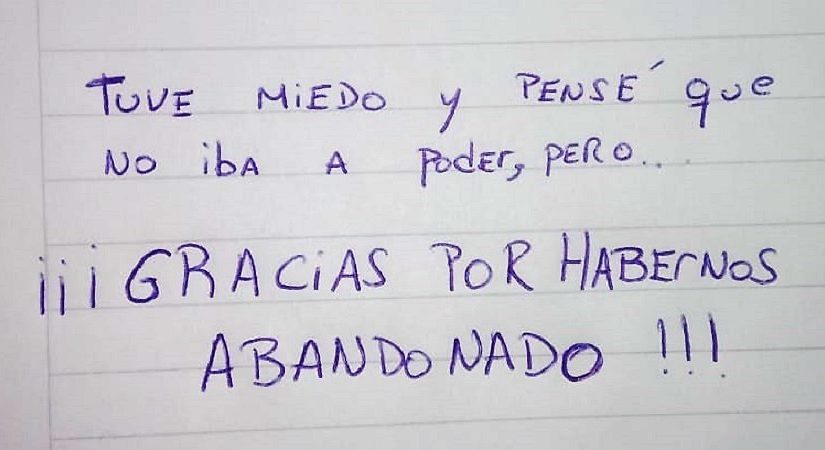 TUVE MiEDO y PENSÉ que
NO ibA A PodEr, PERO...
¡¡¡GRACiAS POR HABErNOS
ABANDONADO !!!